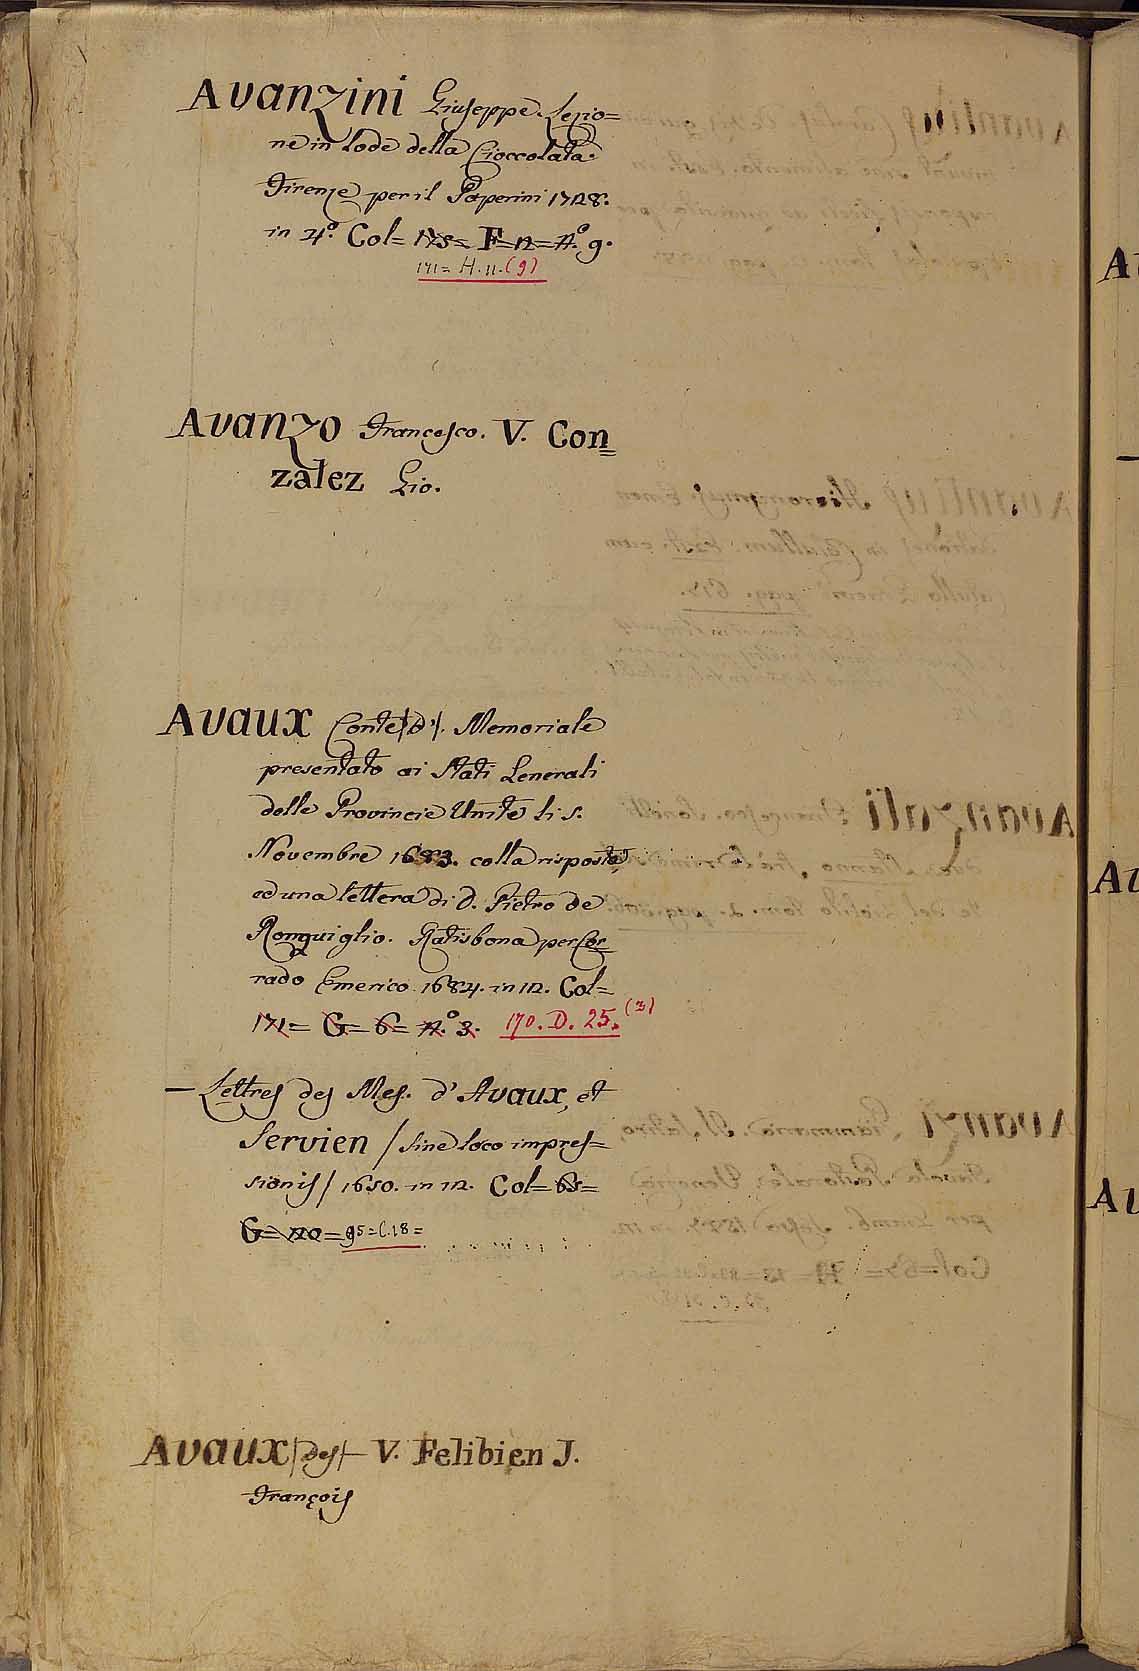 Avanzini Giuseppe. Lezio=
ne in lode della Cioccolata.
Firenze per il Paperini 1728.
in 4.° Col= 175= F=12= N.° 9.
171= H. 11. (9)
Avanzo Francesco. V. Con=
zalez Gio.
Avaux Conte /d'/. Memoriale
presentato ai Stati Generali
delle Provincie Unite li 5.
Novembre 1683. colla risposta,
ed una lettera di D. Pietro de
Ronquiglio. Ratisbona per Cor=
rado Emerico 1684. in 12. Col=
171= G= 6= N.° 3. 170. D. 25. (3)
— Lettres des Mes. d'Avaux, et
Servien / sine loco impres=
sionis / 1650. in 12. Col= 65=
G= 20= 95=C.18=
Avaux /des/ V. Felibien J.
François
A
Av
Av